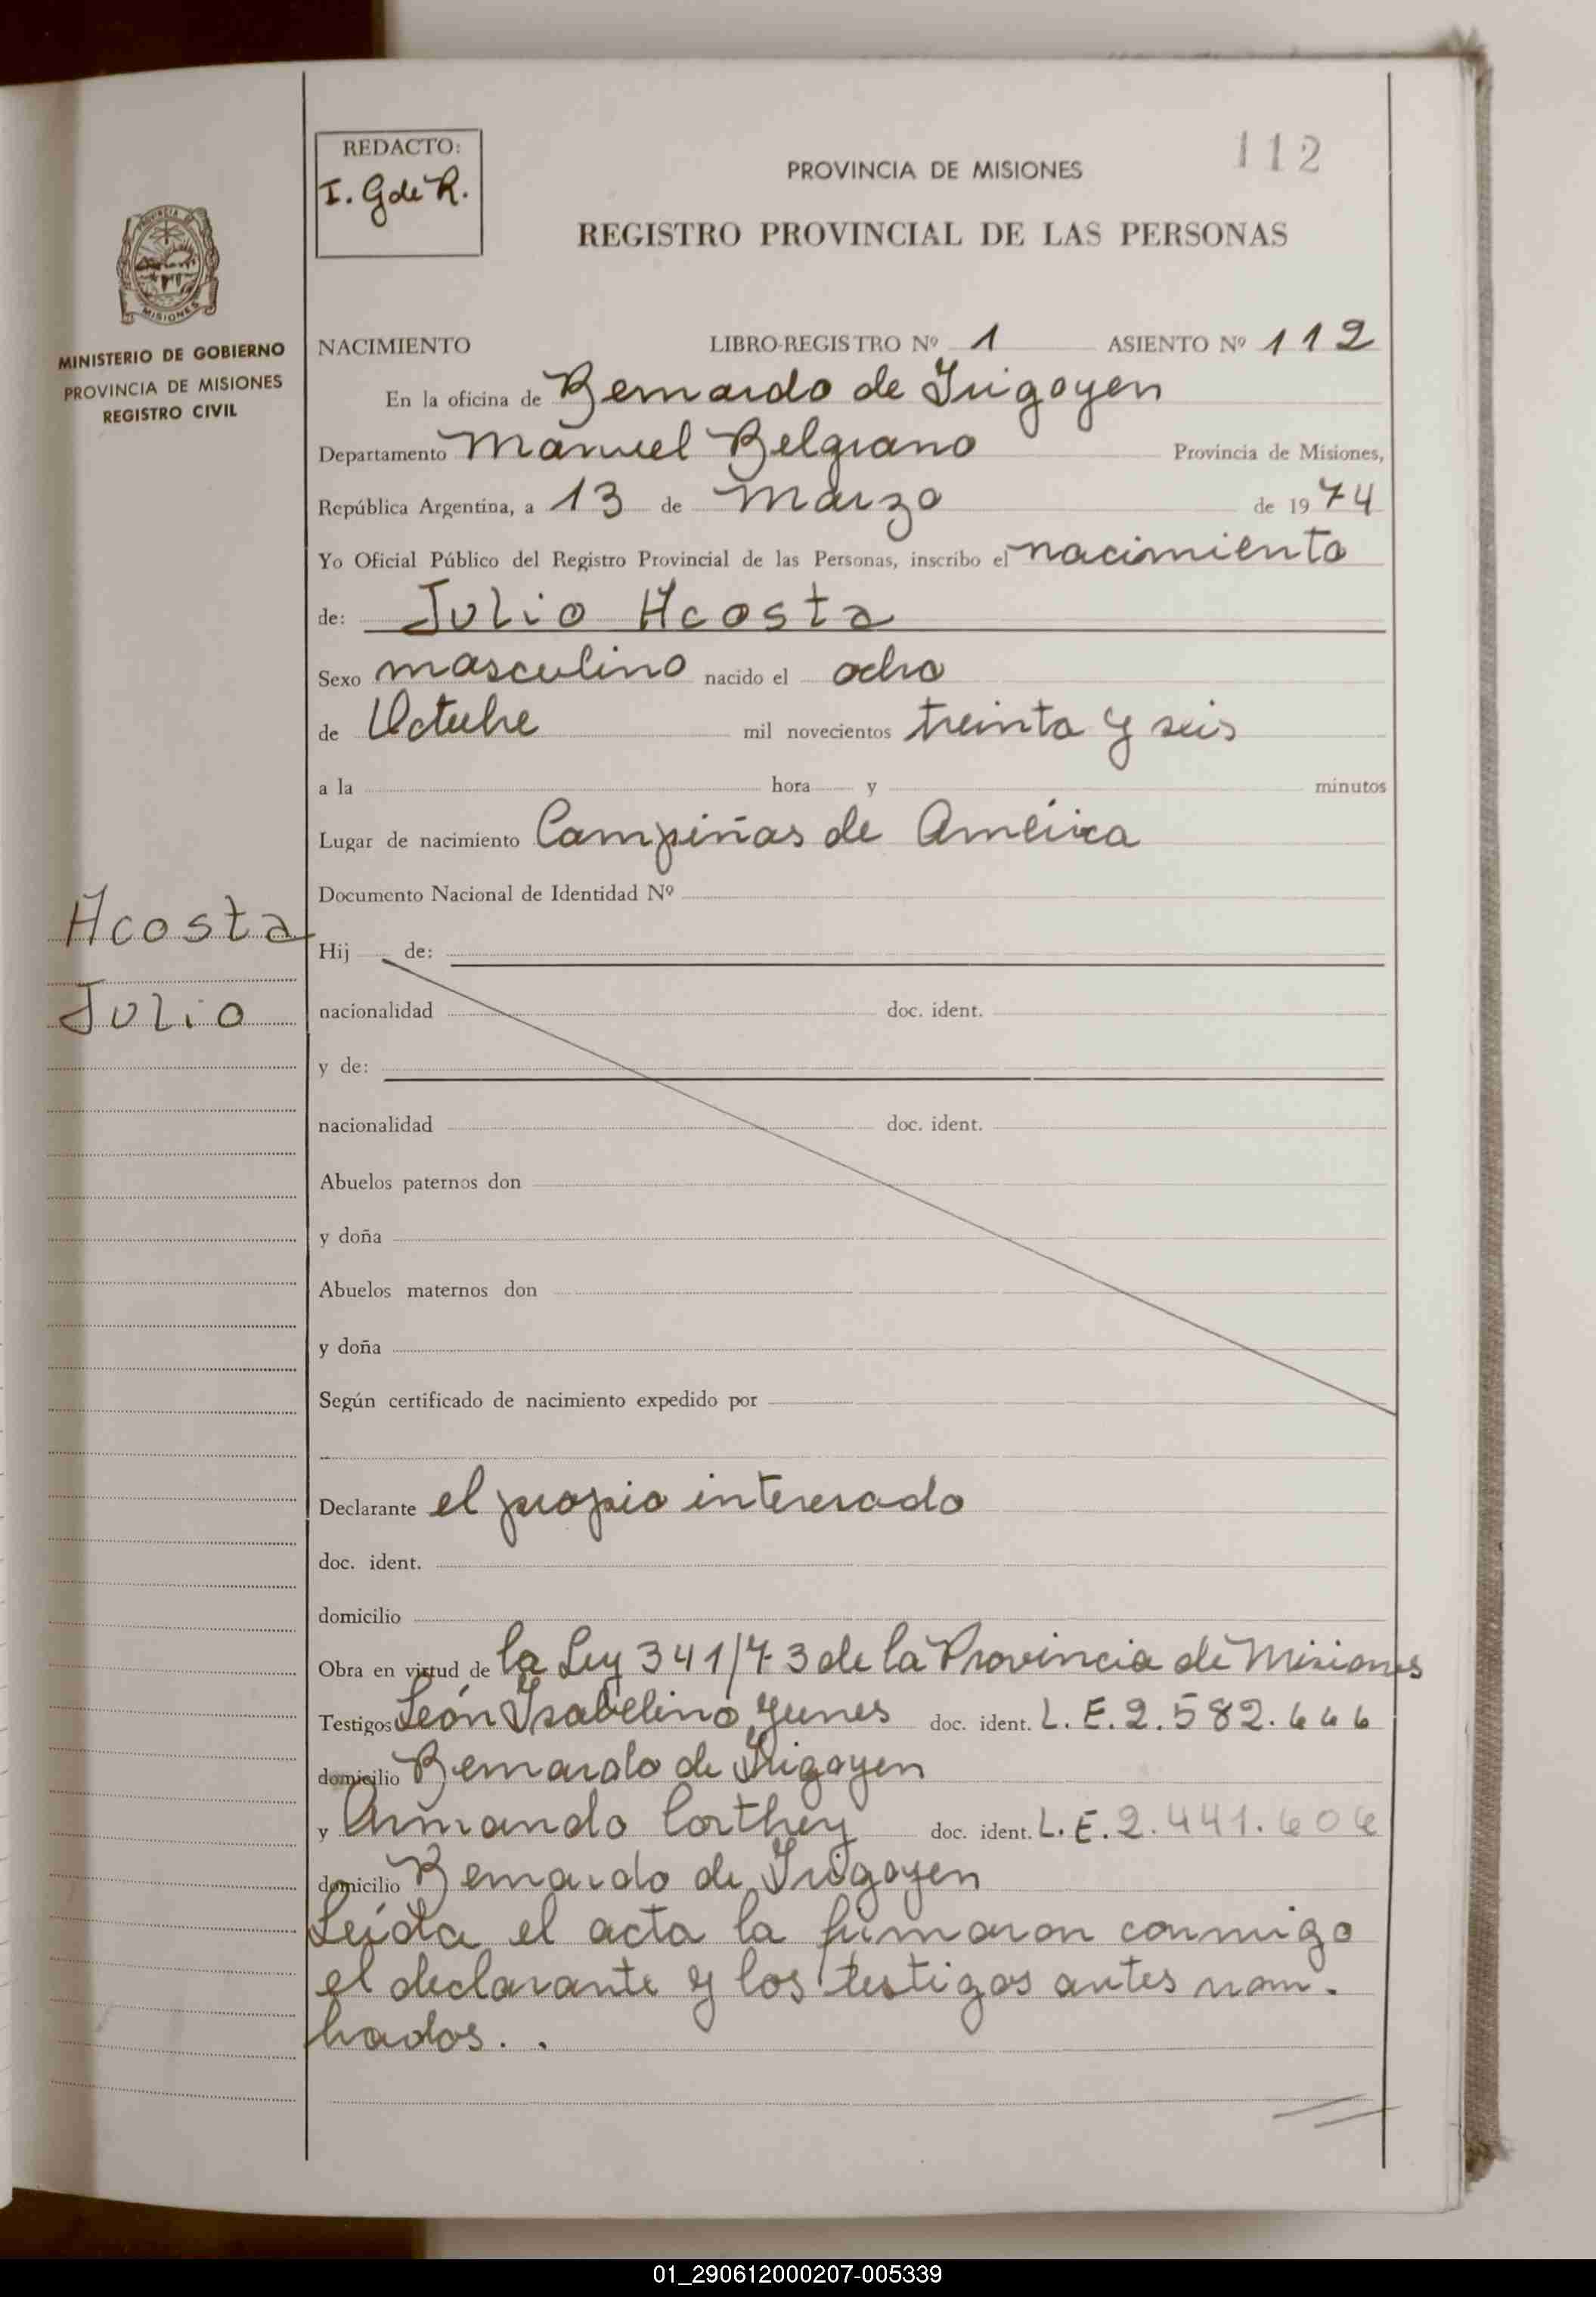 REDACTO:
I. G de R.
112
PROVINCIA DE MISIONES
REGISTRO PROVINCIAL DE LAS PERSONAS
PROVINCIA DE
MISIONES
MINISTERIO DE GOBIERNO
PROVINCIA DE MISIONES
REGISTRO CIVIL
NACIMIENTO LIBRO-REGISTRO Nº 1 ASIENTO Nº 112
En la oficina de Bernardo de Irigoyen
Departamento Manuel Belgrano Provincia de Misiones,
República Argentina, a 13 de Marzo de 1974
Yo Oficial Público del Registro Provincial de las Personas, inscribo el nacimiento
de: Julio Acosta
Sexo masculino nacido el ocho
de Octubre mil novecientos treinta y seis
a la hora y minutos
Lugar de nacimiento Campiñas de América
Documento Nacional de Identidad Nº
Acosta
Julio
Hij de:
nacionalidad doc. ident.
y de:
nacionalidad doc. ident.
Abuelos paternos don
y doña
Abuelos maternos don
y doña
Según certificado de nacimiento expedido por
Declarante el propio interesado
doc. ident.
domicilio
Obra en virtud de la Ley 341/73 de la Provincia de Misiones
Testigos León Isabelino Yunes doc. ident. L. E. 2.582.666
domicilio Bernardo de Irigoyen
y Armando Corthey doc. ident. L. E. 2.441.606
domicilio Bernardo de Irigoyen
Leída el acta la firmaron conmigo
el declarante y los testigos antes nom-
brados. .
01_290612000207-005339